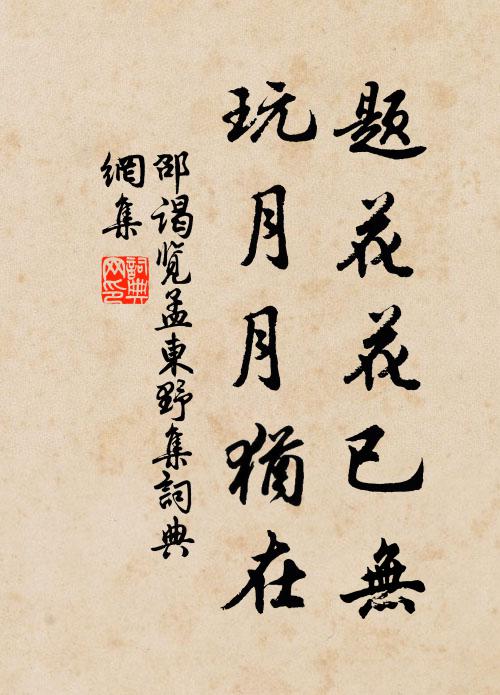 題花花已無
玩月月猶在
邵谒览孟東野集詞典
網集
詞典網印